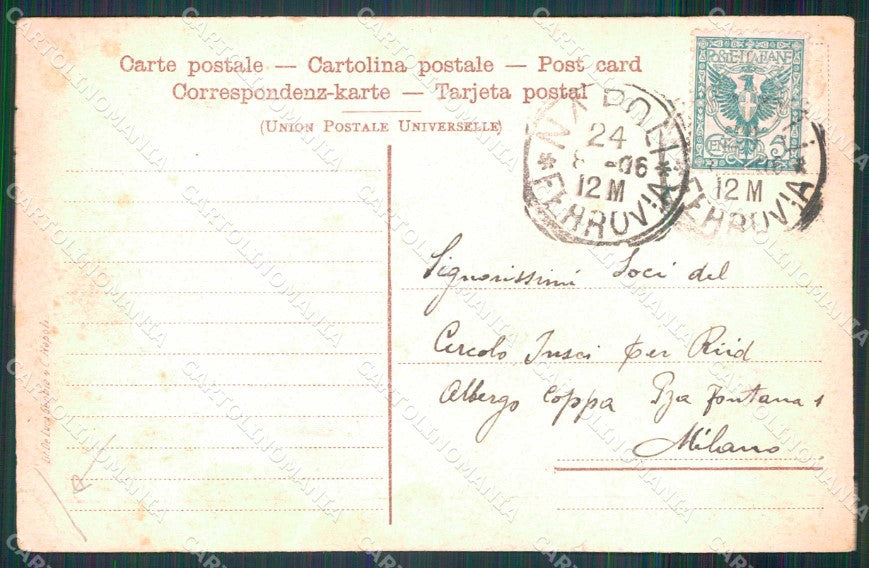 Carte postale — Cartolina postale — Post card
Correspondenz-karte — Tarjeta postal
(UNION POSTALE UNIVERSELLE)
POSTE ITALIANE
CENT. 5
NAPOLI
24
8 -06
12 M
* FERROVIA *
12 M
FERROVIA
Signorissimi Soci del
Circolo per
Albergo Coppa Pza Fontana 1
Milano
Napoli
CARTOLINOMANIA